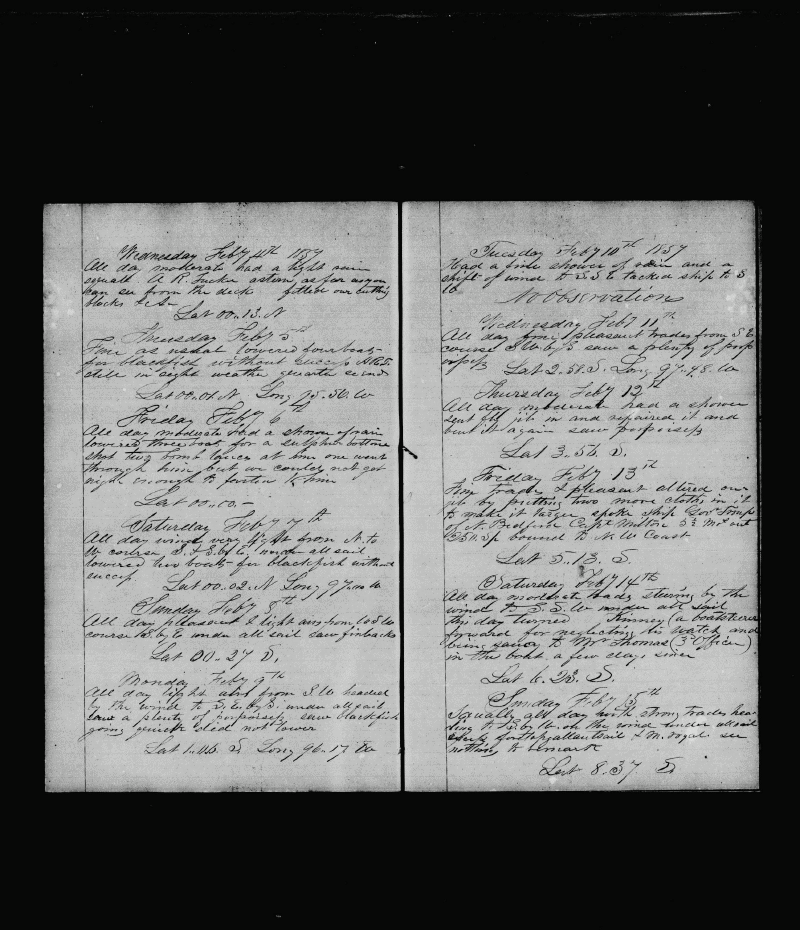 Wednesday Feby 4th 1857
All day moderate had a light rain
squall A R Tucker astern as far as you
can see from the deck fitted our cutting
blocks &c &c
Lat 00..13. N
Thursday Feby 5th
Fine as usual lowered four boats
for blackfish without success A R T
still in sight weather
Lat 00.01 N Long 95.50. W
Friday Feby 6th
All day moderate had a shower of rain
lowered three boats for a sulphur bottom
shot two bomb lances at him one went
through him but we could not get
nigh enough to fasten to him
Lat 00..00.-
Saturday Feby 7th
All day winds very light from N. to
W course S. & S. by E, under all sail
lowered two boats for blackfish without
success
Lat 00..02. N Long 97.00 W
Sunday Feby 8th
All day pleasant & light airs from W
course S. by E under all sail saw finbacks
Lat 00..27 S.
Monday Feby 9th
All day light airs from S. W headed
by the wind to S. under all sail
saw a plenty of porpoises saw blackfish
going quick did not lower
Lat 1..46 S Long 96..17 W
Tuesday Feby 10th 1857
Had a fine shower of rain and a
shift of wind to S S E tacked ship to S
W.
No Observation
Wednesday Feby 11th
All day fine pleasant trades from S. E
course S W by S saw a plenty of porp
oises
Lat 2..58. S. Long 97.48. W
Thursday Feby 12th
All day moderate had a shower
rent fly jib in and repaired it and
bent it again saw porpoises
Lat 3..56 S.
Friday Feby 13th
Fine trades & pleasant altered our
jib by putting two more cloths in it
to make it larger spoke ship Govr Troup
of N. Bedford Capt Milton 5½ Mos out
Sp bound to N. W Coast
Lat 5..13. S
Saturday Feby 14th
All day moderate trades steering by the
wind to S. S. W under all sail
this day turned Finney (a boatsteerer
forward for neglecting his watch and
being saucy to Mr Thomas (3d Officer)
in the boat a few days since
Lat 6..23. S.
Sunday Feby 15th
Squally all day with strong trades hea
ding to S. by W. on the wind under all sail
except foretopgallantsail & M. royal see
nothing to remark
Lat 8..37 S